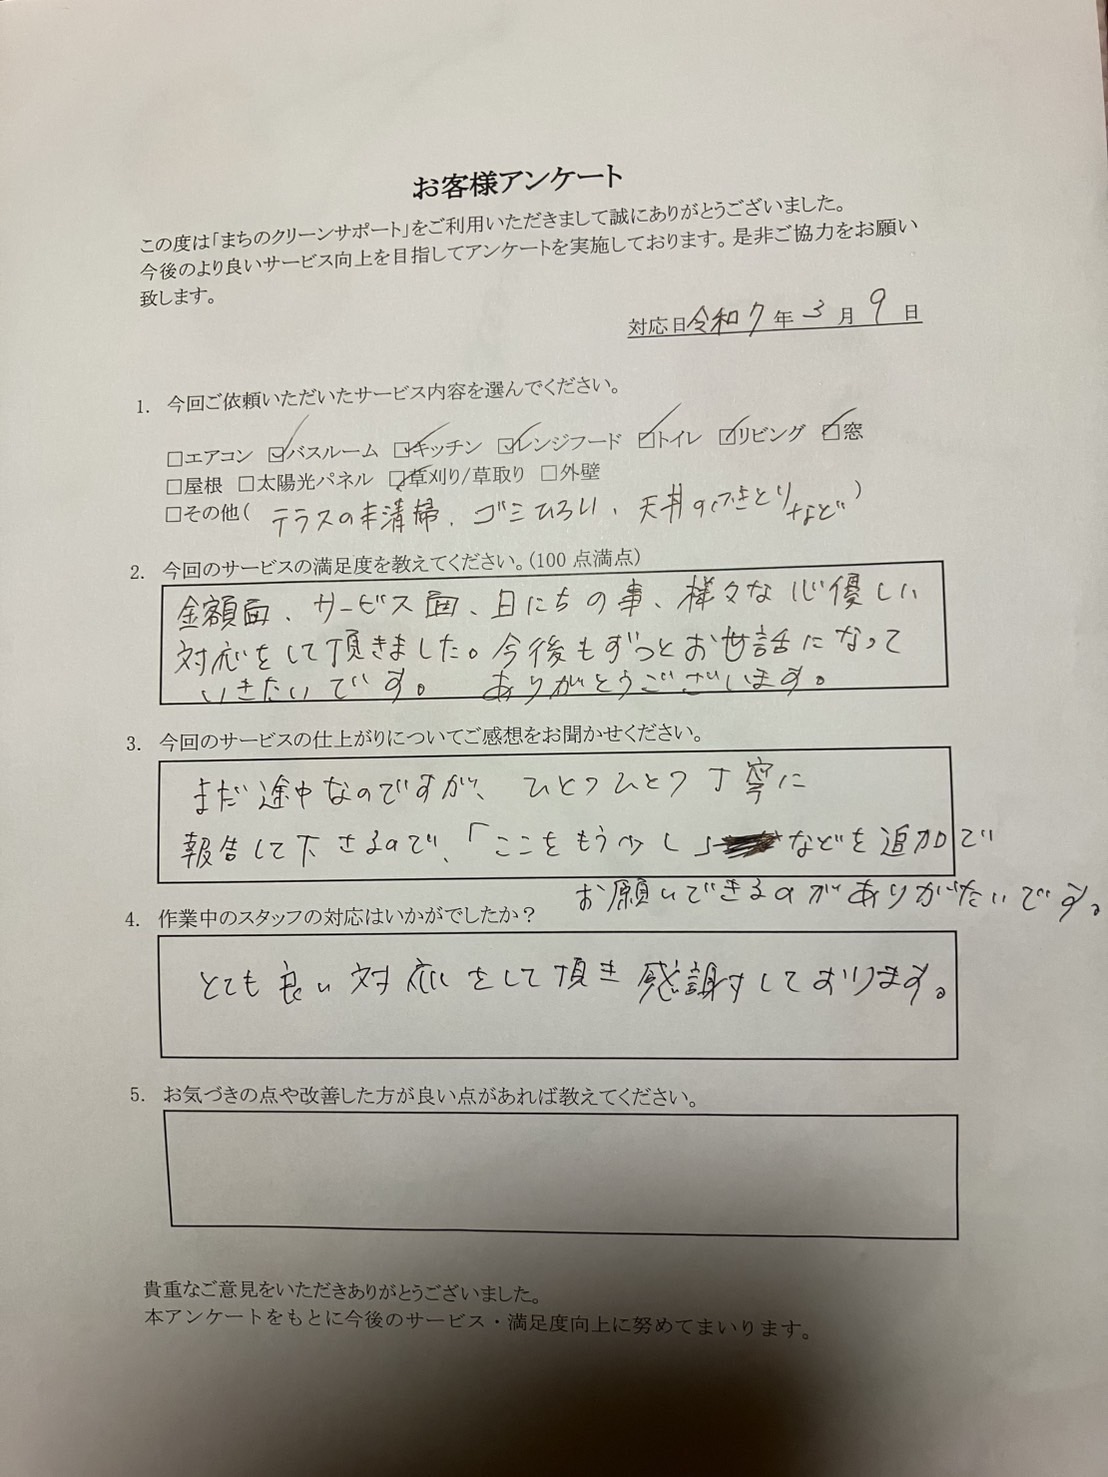 お客様アンケート
この度は「まちのクリーンサポート」をご利用いただきまして誠にありがとうございました。
今後のより良いサービス向上を目指してアンケートを実施しております。是非ご協力をお願い
致します。
対応日令和7年3月9日
1. 今回ご依頼いただいたサービス内容を選んでください。
□エアコン ☑バスルーム ☑キッチン ☑レンジフード ☑トイレ ☑リビング ☑窓
□屋根 □太陽光パネル ☑草刈り/草取り □外壁
□その他( テラスの半清掃、ゴミひろい、天井のふきとりなど)
2. 今回のサービスの満足度を教えてください。(100点満点)
金額面、サービス面、日にちの事、様々な心優しい
対応をして頂きました。今後もずっとお世話になって
いきたいです。 ありがとうございます。
3. 今回のサービスの仕上がりについてご感想をお聞かせください。
まだ途中なのですが、ひとつひとつ丁寧に
報告して下さるので、「ここをもう少し」などを追加で
お願いできるのがありがたいです。
4. 作業中のスタッフの対応はいかがでしたか?
とても良い対応をして頂き感謝しております。
5. お気づきの点や改善した方が良い点があれば教えてください。
貴重なご意見をいただきありがとうございました。
本アンケートをもとに今後のサービス・満足度向上に努めてまいります。